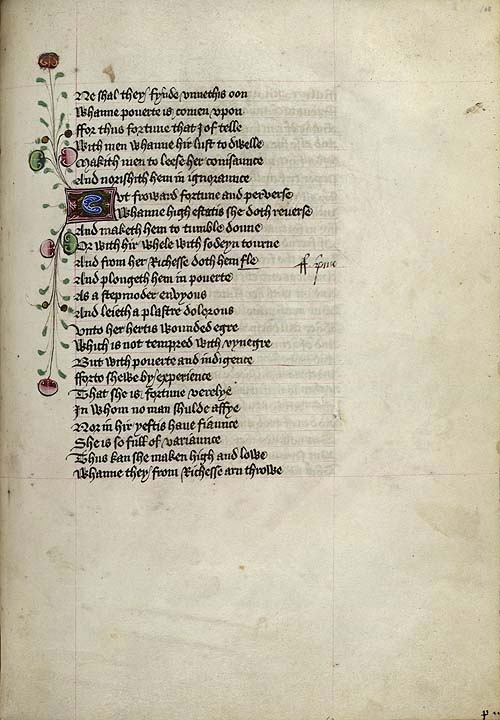 Ne shal they fynde vnnethis oon
Whanne pouerte is comen vpon
ffor thus fortune that J of telle
With men whanne hir lust to dwelle
Makith men to leese her conisaunce
And norishith hem in ignoraunce
Eut froward fortune and perverse
Whanne high estatis she doth reverse
And maketh hem to tumble doune
Or with hir whele with sodeyn tourne
And from her Richesse doth hem fle
And plongeth hem in pouerte
As a stepmoder envyous
And leieth a plastre dolorous
Vnto her hertis wounded egre
Which is not tempred with vynegre
But with pouerte and indigence
fforto shewe by experience
That she is fortune verelye
Jn whom no man shulde affye
Nor in hir yeftis haue fiaunce
She is so full of variaunce
Thus kan she maken high and lowe
Whanne they from Richesse arn throwe